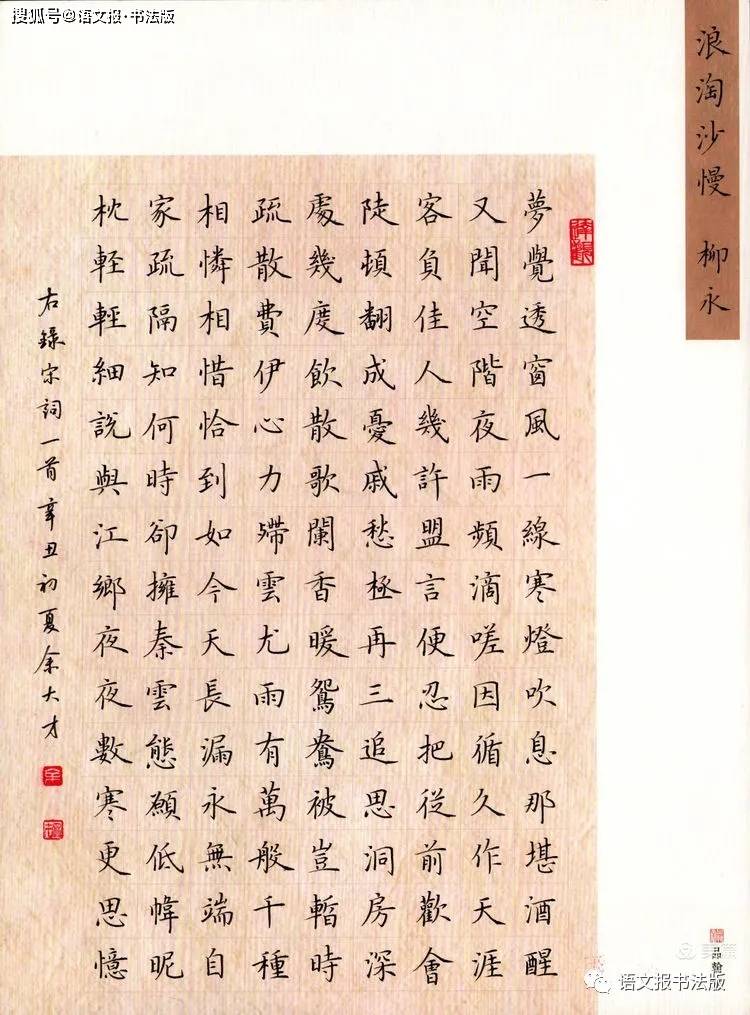 搜狐号@语文报·书法版
浪淘沙慢 柳永
夢覺透窗風一線寒燈吹息那堪酒醒
又聞空階夜雨頻滴嗟因循久作天涯
客負佳人幾許盟言便忍把從前歡會
陡頓翻成憂戚愁極再三追思洞房深
處幾度飲散歌闌香暖鴛鴦被豈暫時
疏散費伊心力殢雲尤雨有萬般千種
相憐相惜恰到如今天長漏永無端自
家疏隔知何時卻擁秦雲態願低幃昵
枕軽輕細說與江鄉夜夜數寒更思憶
右錄宋詞一首辛丑初夏余大才
品翰
语文报书法版